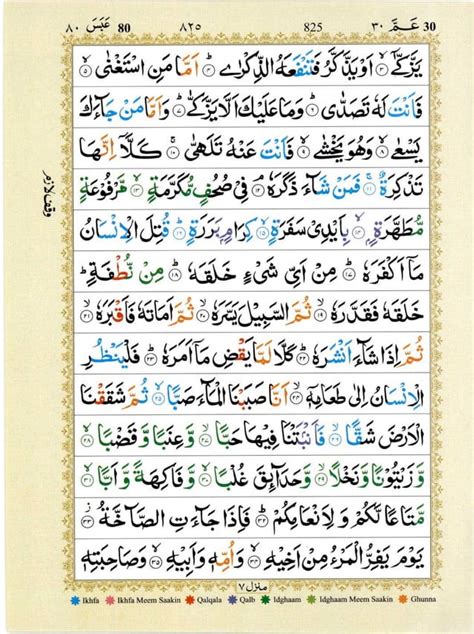 ٨٠ عَبَسَ 80 ٨٢٥ 825 ٣٠ عَمَّ 30
يَزَّكّٰٓىۙ ۝٣ اَوْ يَذَّكَّرُ فَتَنْفَعَهُ الذِّكْرٰىؕ ۝٤ اَمَّا مَنِ اسْتَغْنٰىۙ ۝٥
فَاَنْتَ لَهٗ تَصَدّٰىؕ ۝٦ وَمَا عَلَيْكَ اَلَّا يَزَّكّٰىؕ ۝٧ وَاَمَّا مَنْ جَآءَكَ
يَسْعٰىۙ ۝٨ وَهُوَ يَخْشٰىۙ ۝٩ فَاَنْتَ عَنْهُ تَلَهّٰىۚ ۝١٠ كَلَّاۤ اِنَّهَا
تَذْكِرَةٌۚ ۝١١ فَمَنْ شَآءَ ذَكَرَهٗۘ ۝١٢ فِيْ صُحُفٍ مُّكَرَّمَةٍۙ ۝١٣ مَّرْفُوْعَةٍ
مُّطَهَّرَةٍۭۙ ۝١٤ بِاَيْدِيْ سَفَرَةٍۙ ۝١٥ كِرَامٍۭ بَرَرَةٍؕ ۝١٦ قُتِلَ الْاِنْسَانُ
مَاۤ اَكْفَرَهٗؕ ۝١٧ مِنْ اَيِّ شَيْءٍ خَلَقَهٗؕ ۝١٨ مِنْ نُّطْفَةٍؕ
خَلَقَهٗ فَقَدَّرَهٗۙ ۝١٩ ثُمَّ السَّبِيْلَ يَسَّرَهٗۙ ۝٢٠ ثُمَّ اَمَاتَهٗ فَاَقْبَرَهٗۙ ۝٢١
ثُمَّ اِذَا شَآءَ اَنْشَرَهٗؕ ۝٢٢ كَلَّا لَمَّا يَقْضِ مَاۤ اَمَرَهٗؕ ۝٢٣ فَلْيَنْظُرِ
الْاِنْسَانُ اِلٰى طَعَامِهٖۤۙ ۝٢٤ اَنَّا صَبَبْنَا الْمَآءَ صَبًّاۙ ۝٢٥ ثُمَّ شَقَقْنَا
الْاَرْضَ شَقًّاۙ ۝٢٦ فَاَنْۢبَتْنَا فِيْهَا حَبًّاۙ ۝٢٧ وَّعِنَبًا وَّقَضْبًاۙ ۝٢٨
وَّزَيْتُوْنًا وَّنَخْلًاۙ ۝٢٩ وَّحَدَآئِقَ غُلْبًاۙ ۝٣٠ وَّفَاكِهَةً وَّاَبًّاۙ ۝٣١
مَّتَاعًا لَّكُمْ وَلِاَنْعَامِكُمْؕ ۝٣٢ فَاِذَا جَآءَتِ الصَّآخَّةُ ۝٣٣
يَوْمَ يَفِرُّ الْمَرْءُ مِنْ اَخِيْهِۙ ۝٣٤ وَاُمِّهٖ وَاَبِيْهِۙ ۝٣٥ وَصَاحِبَتِهٖ
وقف لازم
منزل ٧
Ikhfa Ikhfa Meem Saakin Qalqala Qalb Idghaam Idghaam Meem Saakin Ghunna